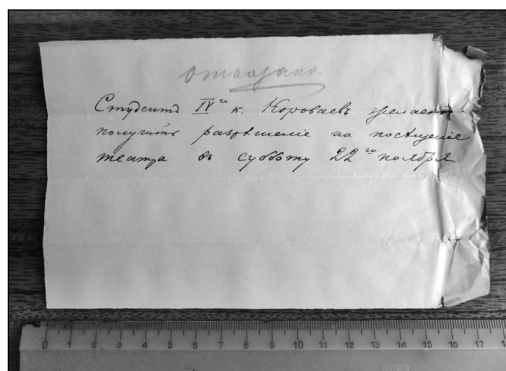 отказано.
Студентъ IV го к. Короваевъ желаетъ
получить разрѣшеніе на посѣщеніе
театра въ субботу 22 го ноября
0 1 2 3 4 5 6 7 8 9 10 11 12 13 14 15 16 17